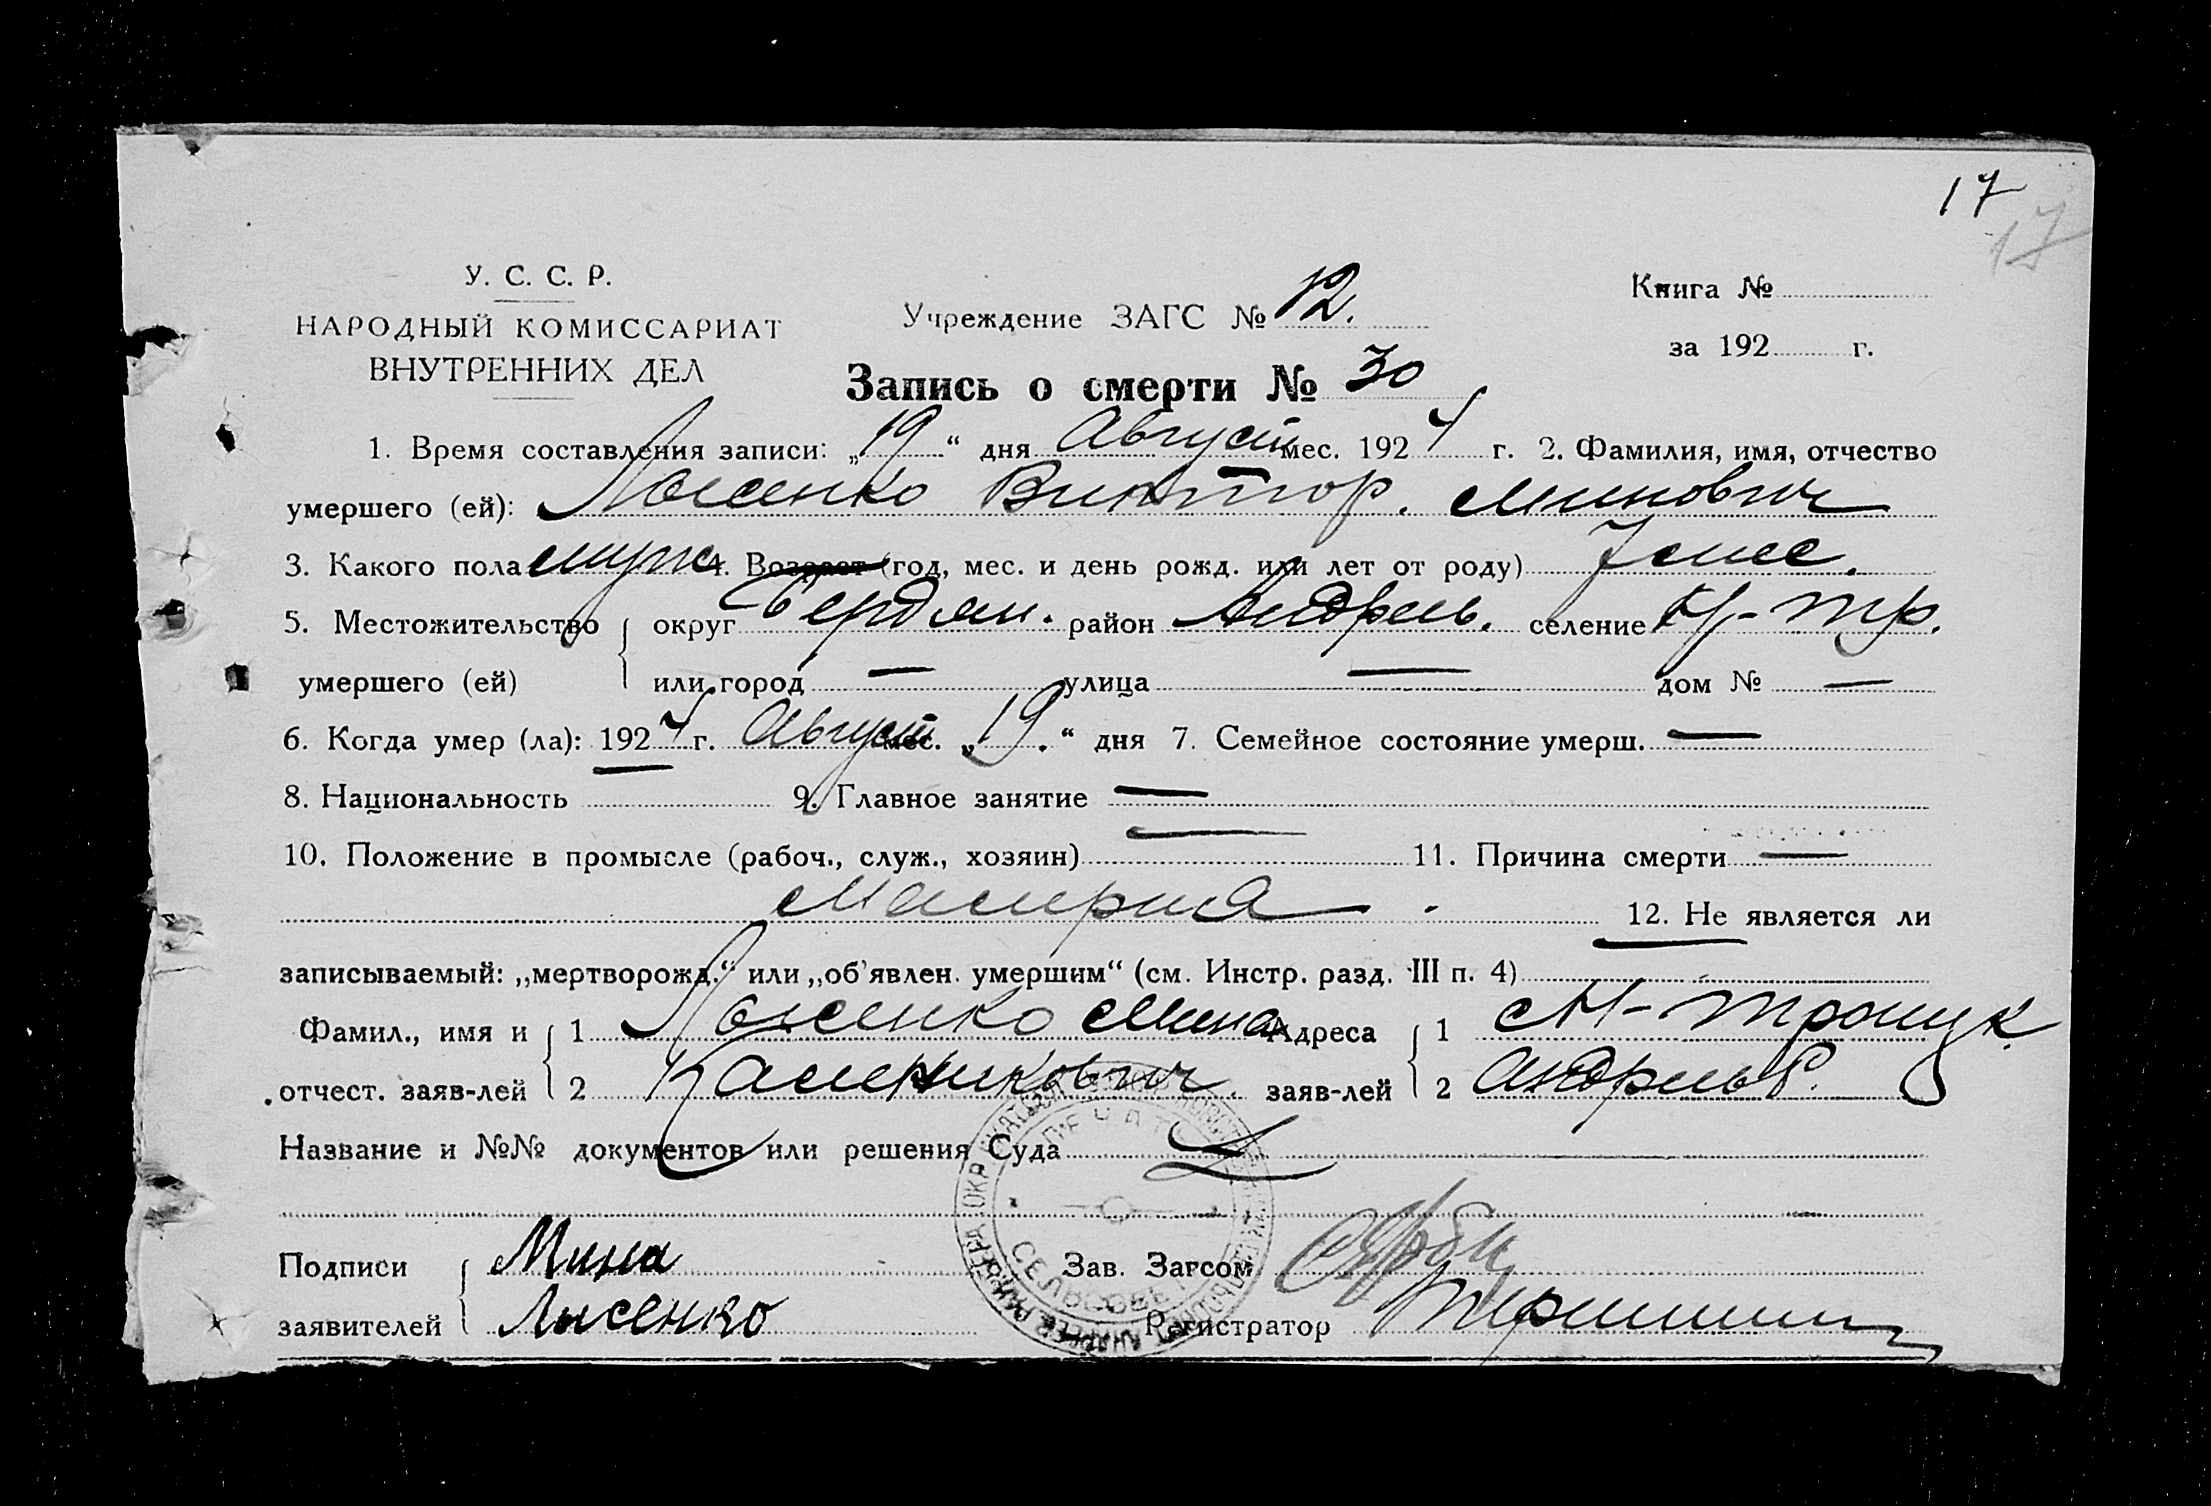 17
17
У. С. С. Р.
НАРОДНЫЙ КОМИССАРИАТ
ВНУТРЕННИХ ДЕЛ
Учреждение ЗАГС № 12.
Книга №
за 192 г.
Запись о смерти № 30
1. Время составления записи: „19“ дня Август мес. 1924 г. 2. Фамилия, имя, отчество
умершего (ей): Лысенко Виктор. Минович
3. Какого пола муж 4. Возраст (год, мес. и день рожд. или лет от роду) 7 мес.
5. Местожительство округ Бердян. район Андреев. селение Н-Тр.
умершего (ей) или город — улица — дом № —
6. Когда умер (ла): 1924 г. Август мес. „19.“ дня 7. Семейное состояние умерш. —
8. Национальность 9. Главное занятие —
10. Положение в промысле (рабоч., служ., хозяин) — 11. Причина смерти —
Малярия.
12. Не является ли
записываемый: „мертворожд.“ или „об'явлен. умершим“ (см. Инстр. разд. III п. 4)
Фамил., имя и 1 Лысенко Мина Адреса 1 Н-Троицк.
отчест. заяв-лей 2 заяв-лей 2
Название и №№ документов или решения Суда
ПЕЧАТЬ
СЕЛЬСОВЕТ
Подписи Мина Зав. Загсом
заявителей Лысенко Регистратор